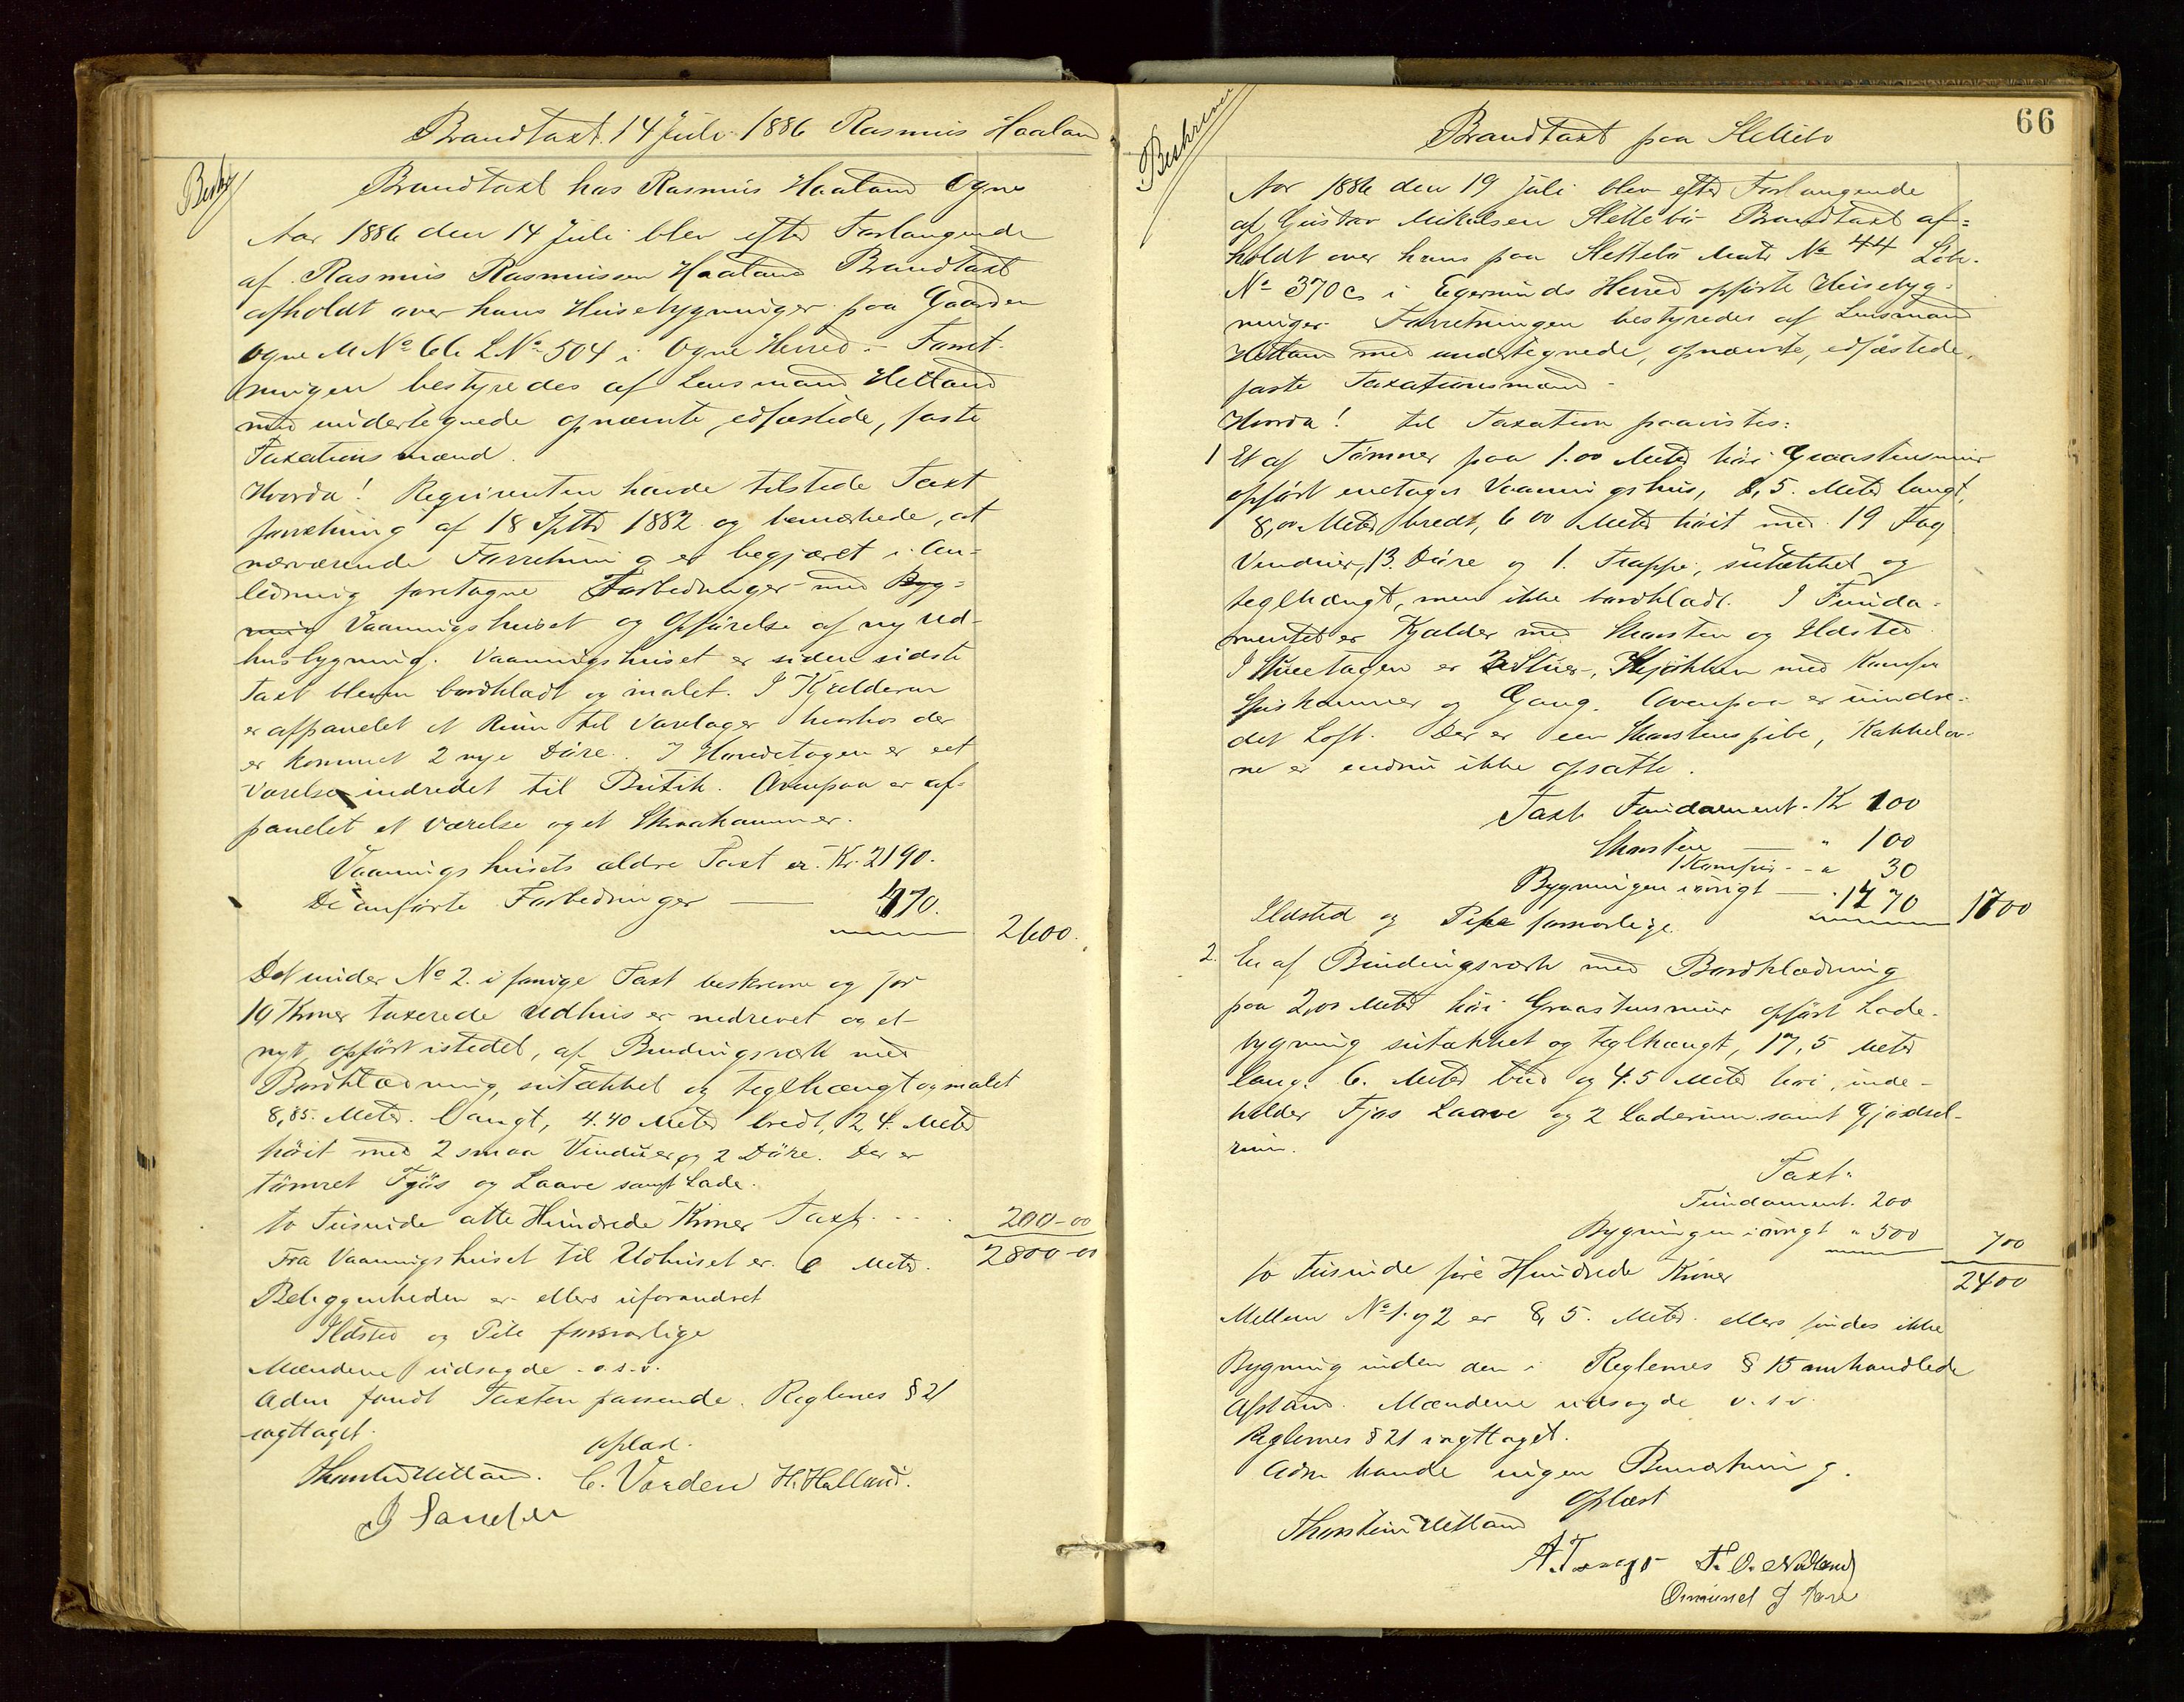 Brandtaxt 14 Juli 1886 Rasmus Haaland
Beskr
Brandtaxt hos Rasmus Haaland Ogne
Aar 1886 den 14 Juli blev efter Forlangende
af Rasmus Rasmussen Haaland Brandtaxt
afholdt over hans Husebygninger paa Gaarden
Ogne M No 66 L No 504 i Ogne Herred. Forret-
ningen bestyredes af Lensmand Hetland
med undertegnede opnævnte, edfæstede, faste
Taxationsmænd.
Hvorda! Reqvirenten havde tilstede Taxt
forretning af 18 Septbr 1882 og bemærkede, at
nærværende Forretning er begjæret i An-
ledning foretagne Forbedringer med Byg-
ning Vaaningshuset og Opførelse af ny Ud-
husbygning. Vaaningshuset er siden sidste
Taxt bleven bordklædt og malet. I Kjælderen
er afpanelet et Rum til Varelager hvorhos der
er kommet 2 nye Døre. I Hovedetagen er eet
Værelse indredet til Butik. Ovenpaa er af-
panelet et Værelse og et Skraakammer.
Vaaningshusets ældre Taxt er Kr. 2190.
De anførte Forbedringer — 410.
2600.
Det under No 2. i forrige Taxt beskrevne og for
Kroner taxerede Udhus er nedrevet og et
nyt, opført istedet, af Bindingsværk med
Bordklædning, sutækket og teglhængt og malet
8,85. Meter langt, 4.40 Meter bredt, 2,4. Meter
høit med 2 smaa Vinduer og 2 Døre. Der er
tømret Fjøs og Laave samt Lade.
to Tusinde otte Hundrede Kroner Taxt. . . . 200-00
Fra Vaaningshuset til Udhuset er 6 Meter. 2800-00
Beliggenheden er ellers uforandret
Ildsted og Pibe forsvarlige
Mændene udsagde o.s.v.
Adm fandt Taxten passende. Reglernes § 21
iagttaget.
Oplæst.
Thorstein Hetland. C. Vaaden H. Halland.
66
Beskreven
Brandtaxt paa Hellebø
Aar 1886 den 19 Juli blev efter Forlangende
af Gustav Mikalsen Hellebø Brandtaxt af-
holdt over hans paa Hellebø Matr No 44 Løbe-
No 370c i Egersunds Herred opførte Husebyg-
ninger. Forretningen bestyredes af Lensmand
Hetland med undertegnede, opnævnte, edfæstede,
faste Taxationsmænd.
Hvorda! til Taxation paavistes:
1 Et af Tømmer paa 1.00 Meter høi Graastensmur
opført enetages Vaaningshus, 8,5. Meter langt,
8,00 Meter bredt, 6 00 Meter høit med 19 Fag
Vinduer, 13 Døre og 1. Trappe, sutækket og
teglhængt, men ikke bordklædt. I Funda-
mentet er Kjælder med Skorsten og Ildsted
I Stueetagen er 2 Stuer, Kjøkken med Komfur
Spiskammer og Gang. Ovenpaa er uindre-
det Loft. Der er een Skorstenspibe, Kakkelov-
ne er endnu ikke opsatte.
Taxt Fundament. Kr 100
Skorsten — " 100
1 Komfur - - " 30
Bygningen iøvrigt — " 1470 1700
Ildsted og Pibe forsvarlige
2. En af Bindingsværk med Bordklædning
paa 2,00 Meter høi Graastensmur opført Lade-
bygning sutækket og teglhængt, 17,5 Meter
lang. 6. Meter bred og 4.5 Meter høi, inde-
holder Fjøs Laave og 2 Laderum samt Gjødsel-
rum.
Taxt:
Fundament. 200
Bygningen iøvrigt " 500 700
to Tusinde fire Hundrede Kroner 2400
Mellem No 1. og 2 er 8,5. Meter. ellers findes ikke
Bygning inden den i Reglernes § 15 omhandlede
Afstand. Mændene udsagde o.s.v.
Reglernes § 21 iagttaget.
Adm havde ingen Bemærkning.
Oplæst
Thorstein Hetland